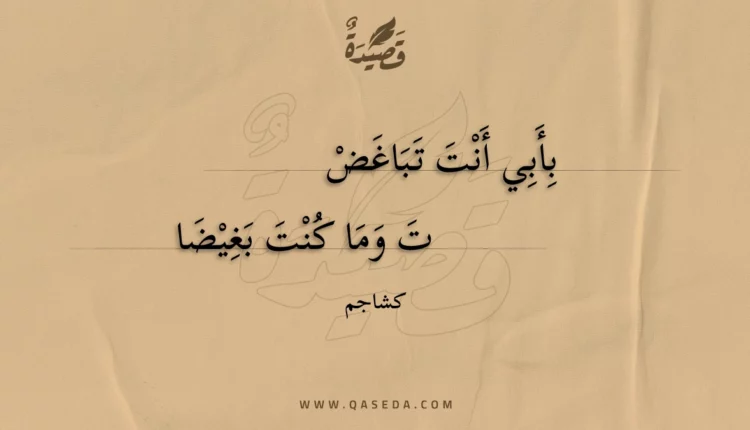 قَصِيدَةٌ
بِأَبِي أَنْتَ تَبَاغَضْ
تَ وَمَا كُنْتَ بَغِيْضَا
كشاجم
WWW.QASEDA.COM